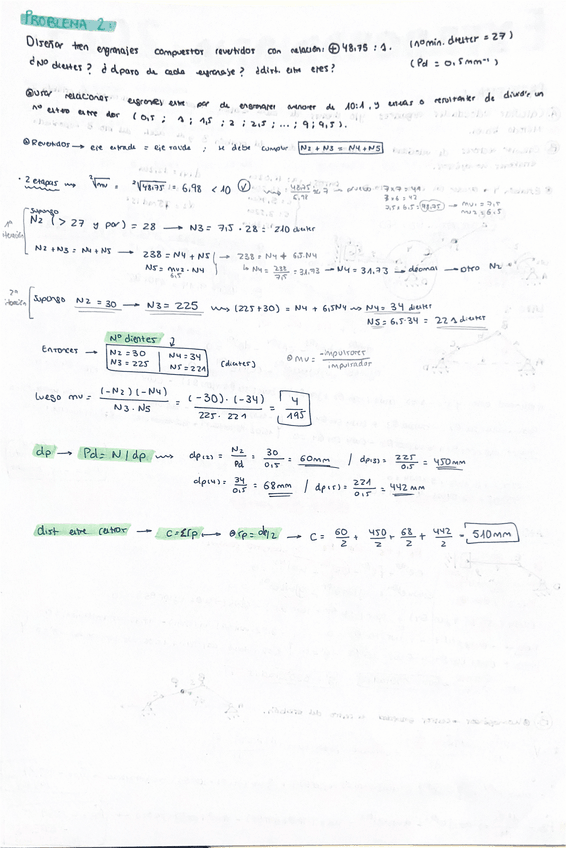 PROBLEMA 2:
Diseñar tren engranajes compuestos revertidos con relación: ⊕ 48.75 : 1. (nº min. dientes = 27)
¿Nº dientes? ¿dparo de cada engranaje? ¿dist. entre ejes? (Pd = 0,5 mm⁻¹)
relaciones engranes entre par de engranajes menores de 10:1, y
nº entero entre dos (0,5 ; 1 ; 1,5 ; 2 ; 2,5 ; ... ; 9 ; 9,5).
⊗ Revertidos → eje entrada = eje salida ; se debe cumplir N2 + N3 = N4 + N5
· 2 etapas → ²√mv = ²√48.75 = 6.98 < 10 (V) → 48.75/6.98 ≈ 7 → 7 x 7 = 49
7,5 x 6,5 = 48,75 → mv1 = 7,5
mv2 = 6,5
1ª iteración
Supongo
N2 (> 27 y par) = 28 → N3 = 7,5 · 28 = 210 dientes
N2 + N3 = N4 + N5 → 238 = N4 + N5 → 238 = N4 + 6.5N4
N5 = mv2 · N4 N4 = 238/7,5 = 31.73 → N4 = 31.73 → decimal → otro N2
2ª iteración
Supongo N2 = 30 → N3 = 225 → (225 + 30) = N4 + 6,5N4 → N4 = 34 dientes
N5 = 6,5 · 34 = 221 dientes
Nº dientes
Entonces → N2 = 30 | N4 = 34
N3 = 225 | N5 = 221 (dientes) ⊗ mv = -impulsores / impulsador
Luego mv = (-N2)(-N4) / N3 · N5 = (-30) · (-34) / 225 · 221 = 4/195
dp → Pd = N / dp → dp(2) = N2/Pd = 30/0,5 = 60mm / dp(3) = 225/0,5 = 450mm
dp(4) = 34/0,5 = 68mm / dp(5) = 221/0,5 = 442 mm
dist entre centros → C = Σrp → ⊗ rp = dp/2 → C = 60/2 + 450/2 + 68/2 + 442/2 = 510mm